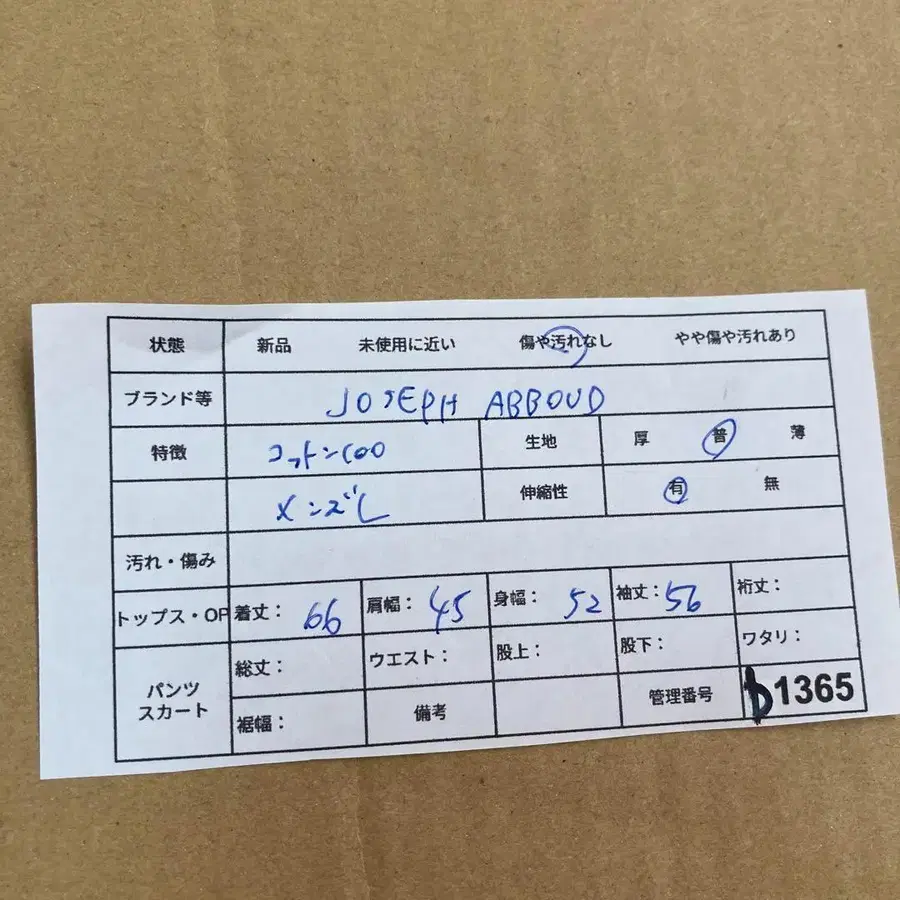 状態 新品 未使用に近い 傷や汚れなし やや傷や汚れあり
ブランド等 JOSEPH ABBOUD
特徴 コットン100 生地 厚 普 薄
メンズL 伸縮性 有 無
汚れ・傷み
トップス・OP 着丈： 66 肩幅： 45 身幅： 52 袖丈： 56 裄丈：
パンツ スカート 総丈： ウエスト： 股上： 股下： ワタリ：
裾幅： 備考 管理番号 b1365